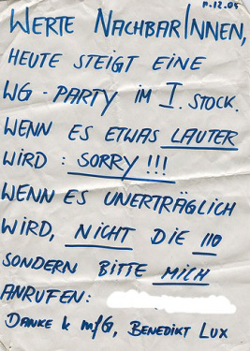 11.12.04
Werte NachbarInnen,
heute steigt eine
WG-Party im I. Stock.
Wenn es etwas lauter
wird: Sorry!!!
Wenn es unerträglich
wird, nicht die 110
sondern bitte mich
anrufen:
Danke & mfG, Benedikt Lux